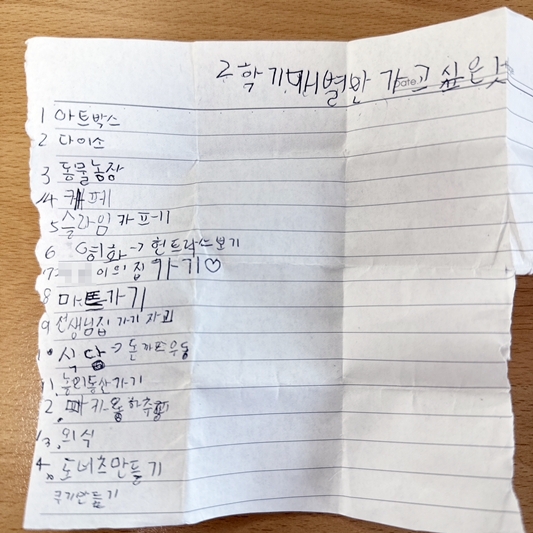 2학기 개별반 가고 싶은 곳
Date.
1 아트박스
2 다이소
3 동물농장
4 카페
5 슬라임 카페
6 영화 → 헌트릭스보기
7 이의 집 가기♡
8 마트가기
9 선생님집 가기
10 식당 → 돈까스우동
11. 놀이동산가기
12. 마카롱
13. 외식
14. 도너츠만들기
쿠키만들기